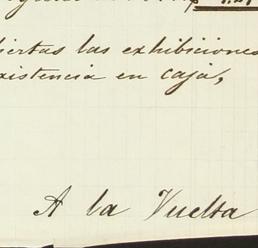 iertas las exhibiciones
xistencia en caja,
A la Vuelta